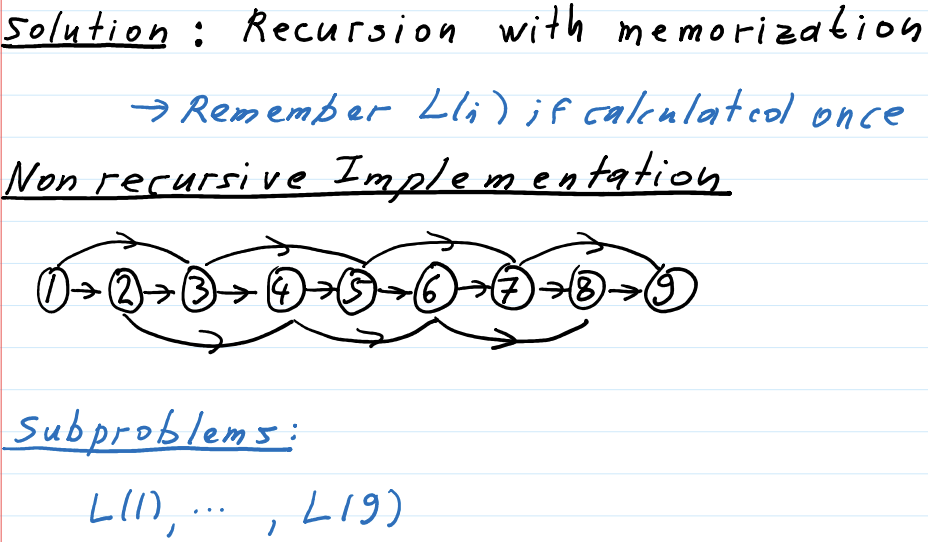 Solution : Recursion with memorization
→ Remember L(i) if calculated once
Non recursive Implementation
1 → 2 → 3 → 4 → 5 → 6 → 7 → 8 → 9
Subproblems:
L(1), ... , L(9)